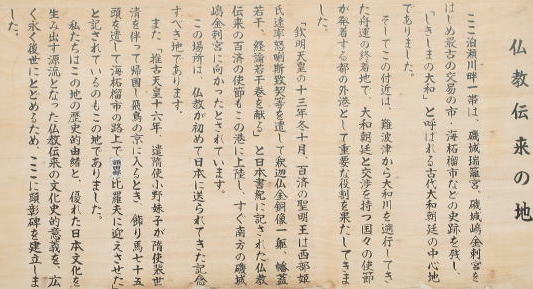 仏教伝来の地
ここ泊瀬川畔一帯は、磯城瑞籬宮、磯城嶋金刺宮を
はじめ最古の交易の市・海柘榴市などの史跡を残し、
「しきしまの大和」と呼ばれる古代大和朝廷の中心地
でありました。
そしてこの付近は、難波津から大和川を遡行してき
た舟運の終着地で、大和朝廷と交渉を持つ国々の使節
が発着する都の外港として重要な役割を果たしてきま
した。
「欽明天皇の十三年冬十月、百済の聖明王は西部姫
氏達率怒唎斯致契等を遣して釈迦仏金銅像一軀、幡蓋
若干、経論若干巻を献る」と日本書紀に記された仏教
伝来の百済の使節もこの港に上陸し、すぐ南方の磯城
嶋金刺宮に向かったとされています。
この場所は、仏教が初めて日本に送られてきた記念
すべき地であります。
また、「推古天皇十六年、遣隋使小野妹子が隋使裴世
清を伴って帰国し飛鳥の京に入るとき、飾り馬七十五
頭を遣して海柘榴市の路上で額田部比羅夫に迎えさせた」
と記されているのもこの地でありました。
私たちはこの地の歴史的由緒と、優れた日本文化を
生み出す源流となった仏教伝来の文化史的意義を、広
く永く後世にとどめるため、ここに顕彰碑を建立しま
した。